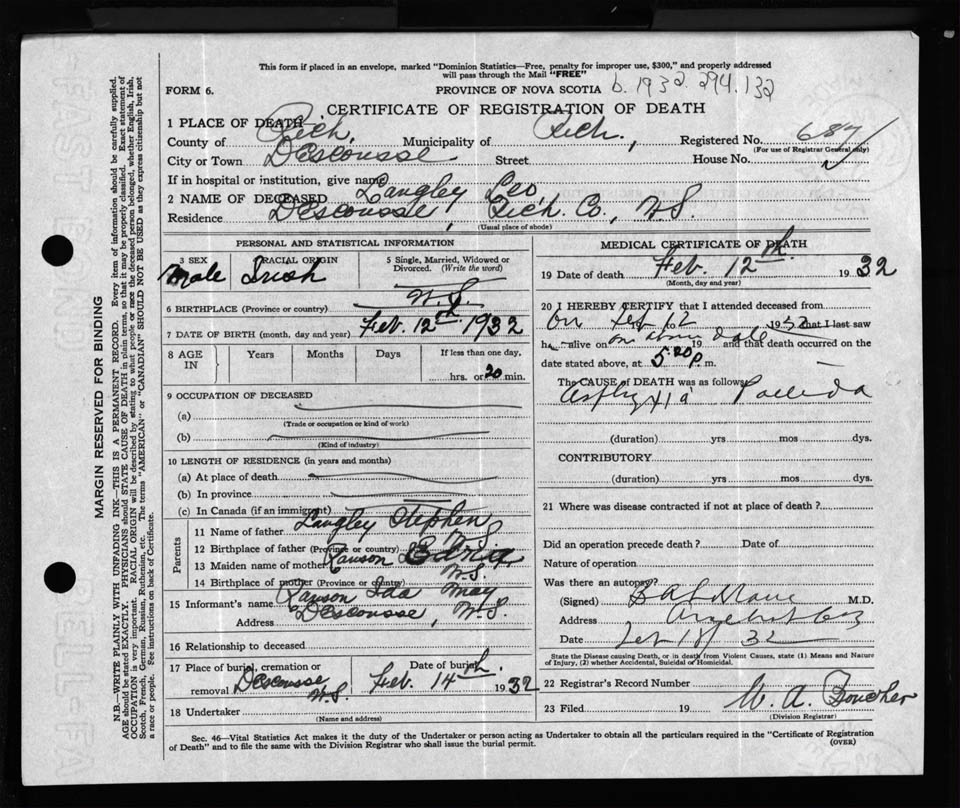 This form if placed in an envelope, marked "Dominion Statistics—Free, penalty for improper use, $300," and properly addressed
will pass through the Mail "FREE"
FORM 6. PROVINCE OF NOVA SCOTIA b. 1932. 294. 132
CERTIFICATE OF REGISTRATION OF DEATH
1 PLACE OF DEATH
County of Rich, Municipality of Rich., Registered No. 687
(For use of Registrar General only)
City or Town DEscousse Street House No.
If in hospital or institution, give name
2 NAME OF DECEASED Langley Leo,
Residence DEscousse, Rich. Co., N.S.
(Usual place of abode)
PERSONAL AND STATISTICAL INFORMATION
3 SEX RACIAL ORIGIN 5 Single, Married, Widowed or
Divorced. (Write the word)
Male Irish
6 BIRTHPLACE (Province or country) N.S.
7 DATE OF BIRTH (month, day and year) Feb. 12th 1932
8 AGE IN Years Months Days If less than one day,
hrs. or 20 min.
9 OCCUPATION OF DECEASED
(a)
(Trade or occupation or kind of work)
(b)
(Kind of industry)
10 LENGTH OF RESIDENCE (in years and months)
(a) At place of death
(b) In province
(c) In Canada (if an immigrant)
Parents
11 Name of father Langley Stephen
12 Birthplace of father (Province or country) N.S.
13 Maiden name of mother
14 Birthplace of mother (Province or country) N.S.
15 Informant's name Ida May
Address DEscousse, N.S.
16 Relationship to deceased
17 Place of burial, cremation or Date of burial
removal DEscousse N.S. Feb. 14th 1932
18 Undertaker
(Name and address)
MEDICAL CERTIFICATE OF DEATH
19 Date of death Feb. 12th 1932
(Month, day and year)
20 I HEREBY CERTIFY that I attended deceased from
on Feb 12 1932 that I last saw
h alive on on above date 19 and that death occurred on the
date stated above, at 5.20 p. m.
The CAUSE of DEATH was as follows:
Asphyxia Pallida
(duration) yrs mos dys.
CONTRIBUTORY
(duration) yrs mos dys.
21 Where was disease contracted if not at place of death?
Did an operation precede death? Date of
Nature of operation
Was there an autopsy?
(Signed) M.D.
Address
Date Feb 32
State the Disease causing Death, or in death from Violent Causes, state (1) Means and
Nature of Injury, (2) whether Accidental, Suicidal or Homicidal.
22 Registrar's Record Number
23 Filed 19 W. A. Boucher
(Division Registrar)
Sec. 46—Vital Statistics Act makes it the duty of the Undertaker or person acting as Undertaker to obtain all the particulars required in the "Certificate of Registration
of Death" and to file the same with the Division Registrar who shall issue the burial permit. (OVER)
MARGIN RESERVED FOR BINDING
N.B.—WRITE PLAINLY WITH UNFADING INK—THIS IS A PERMANENT RECORD. Every item of information should be carefully supplied.
AGE should be stated EXACTLY. PHYSICIANS should STATE CAUSE OF DEATH in plain terms, so that it may be properly classified. Exact statement of
OCCUPATION is very important. RACIAL ORIGIN will be described by stating to what people or race the deceased person belonged, whether English, Irish,
Scotch, French, German, Russian, Ruthenian, etc. The terms "AMERICAN" or "CANADIAN" SHOULD NOT BE USED as they express citizenship but not
a race or people. See instructions on back of Certificate.